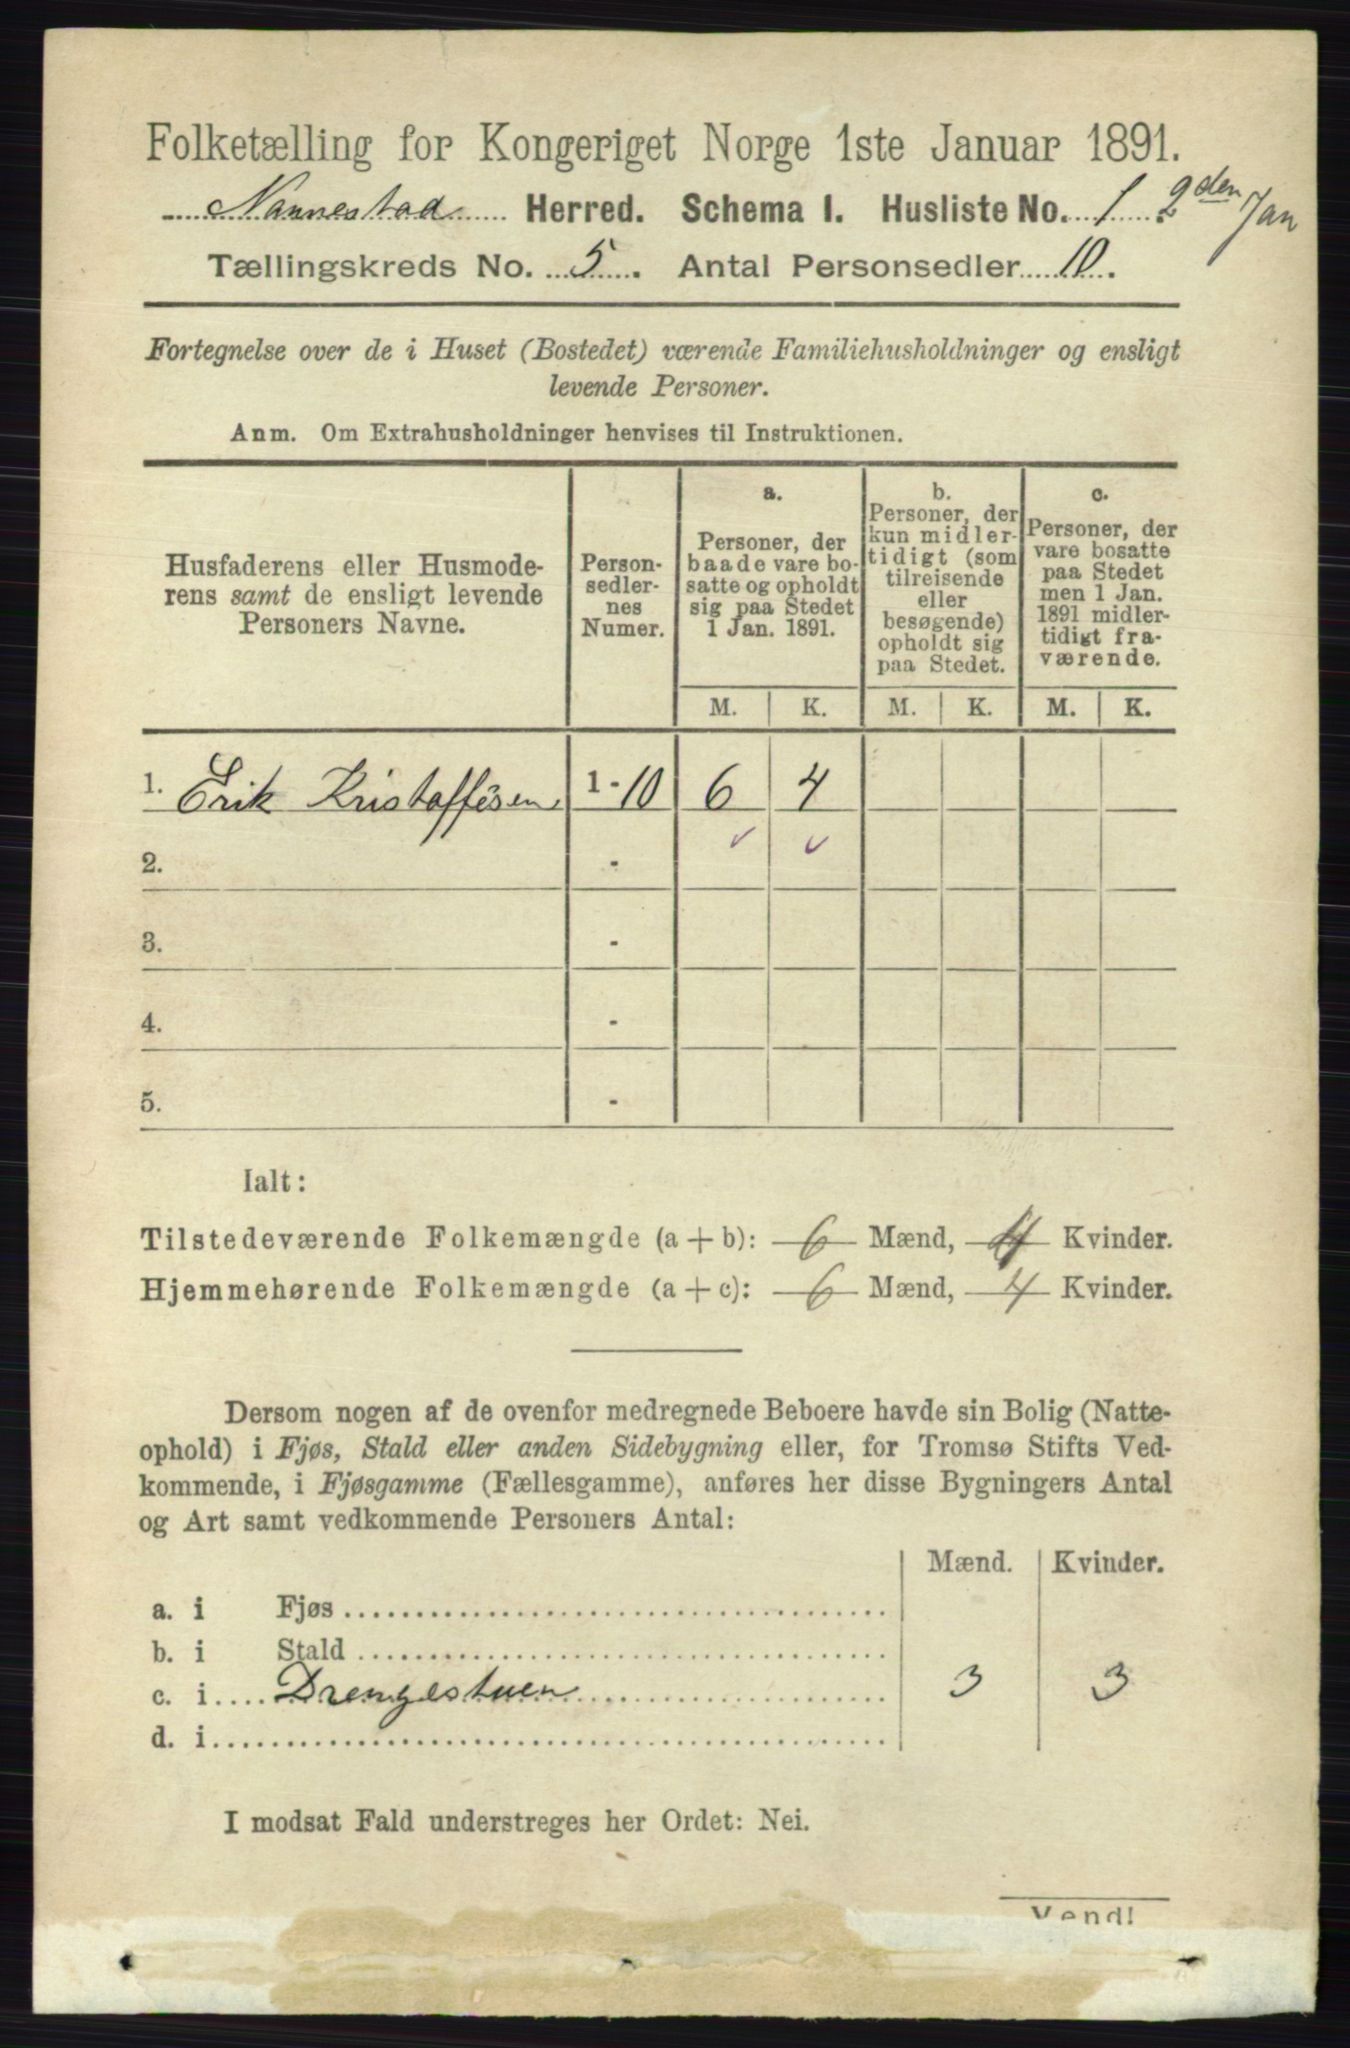 Folketælling for Kongeriget Norge 1ste Januar 1891.
Nannestad Herred. Schema I. Husliste No. 1. 2den Jan
Tællingskreds No. 5. Antal Personsedler 10.
Fortegnelse over de i Huset (Bostedet) værende Familiehusholdninger og ensligt
levende Personer.
Anm. Om Extrahusholdninger henvises til Instruktionen.
Husfaderens eller Husmode-
rens samt de ensligt levende
Personers Navne.
Person-
sedler-
nes
Numer.
a.
Personer, der
baade vare bo-
satte og opholdt
sig paa Stedet
1 Jan. 1891.
b.
Personer, der
kun midler-
tidigt (som
tilreisende
eller
besøgende)
opholdt sig
paa Stedet.
c.
Personer, der
vare bosatte
paa Stedet
men 1 Jan.
1891 midler-
tidigt fra-
værende.
M. K. M. K. M. K.
1. Erik Kristoffersen 1 - 10 6 4
2. -
3. -
4. -
5. -
Ialt:
Tilstedeværende Folkemængde (a + b): 6 Mænd, 4 Kvinder.
Hjemmehørende Folkemængde (a + c): 6 Mænd, 4 Kvinder.
Dersom nogen af de ovenfor medregnede Beboere havde sin Bolig (Natte-
ophold) i Fjøs, Stald eller anden Sidebygning eller, for Tromsø Stifts Ved-
kommende, i Fjøsgamme (Fællesgamme), anføres her disse Bygningers Antal
og Art samt vedkommende Personers Antal:
Mænd. Kvinder.
a. i Fjøs
b. i Stald
c. i Drengestuen 3 3
d. i
I modsat Fald understreges her Ordet: Nei.
Vend!